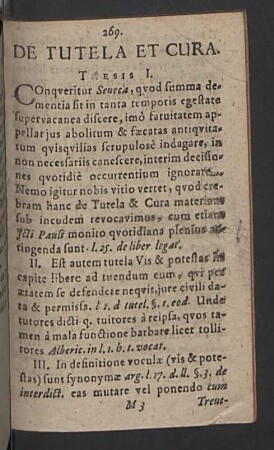 269.
DE TUTELA ET CURA.
THESIS I.
COnqveritur Seneca, qvod summa de-
mentia sit in tanta temporis egestate
supervacanea discere, imò fatuitatem ap-
pellat jus abolitum & fæcatas antiqvita-
tum qvisqvilias scrupulosè indagare, in
non necessariis canescere, interim decisio-
nes qvotidiè occurrentium ignorare.
Nemo igitur nobis vitio vertet, qvod cre-
bram hanc de Tutela & Cura materiam
sub incudem revocavimus, cum etiam
Jcti Pauli monito qvotidiana psensus at-
tingenda sunt. l. 25. de liber. legat.
II. Est autem tutela Vis & potestas in
capite libero ad tuendum eum, qvi per
ætatem se defendere neqvit, jure civili da-
ta & permissa. l. 1. d tutel. §. 1. eod. Unde
tutores dicti q. tuitores à reipsa, qvos ta-
men à mala functione barbare licet tolli-
tores Alberic. in l. 1. h. t. vocat.
III. In definitione voculæ (vis & pote-
stas) sunt synonymæ arg. l. 17. d. ll. §. 3. de
interdict. eas mutare vel ponendo cum
M 3 Treut-